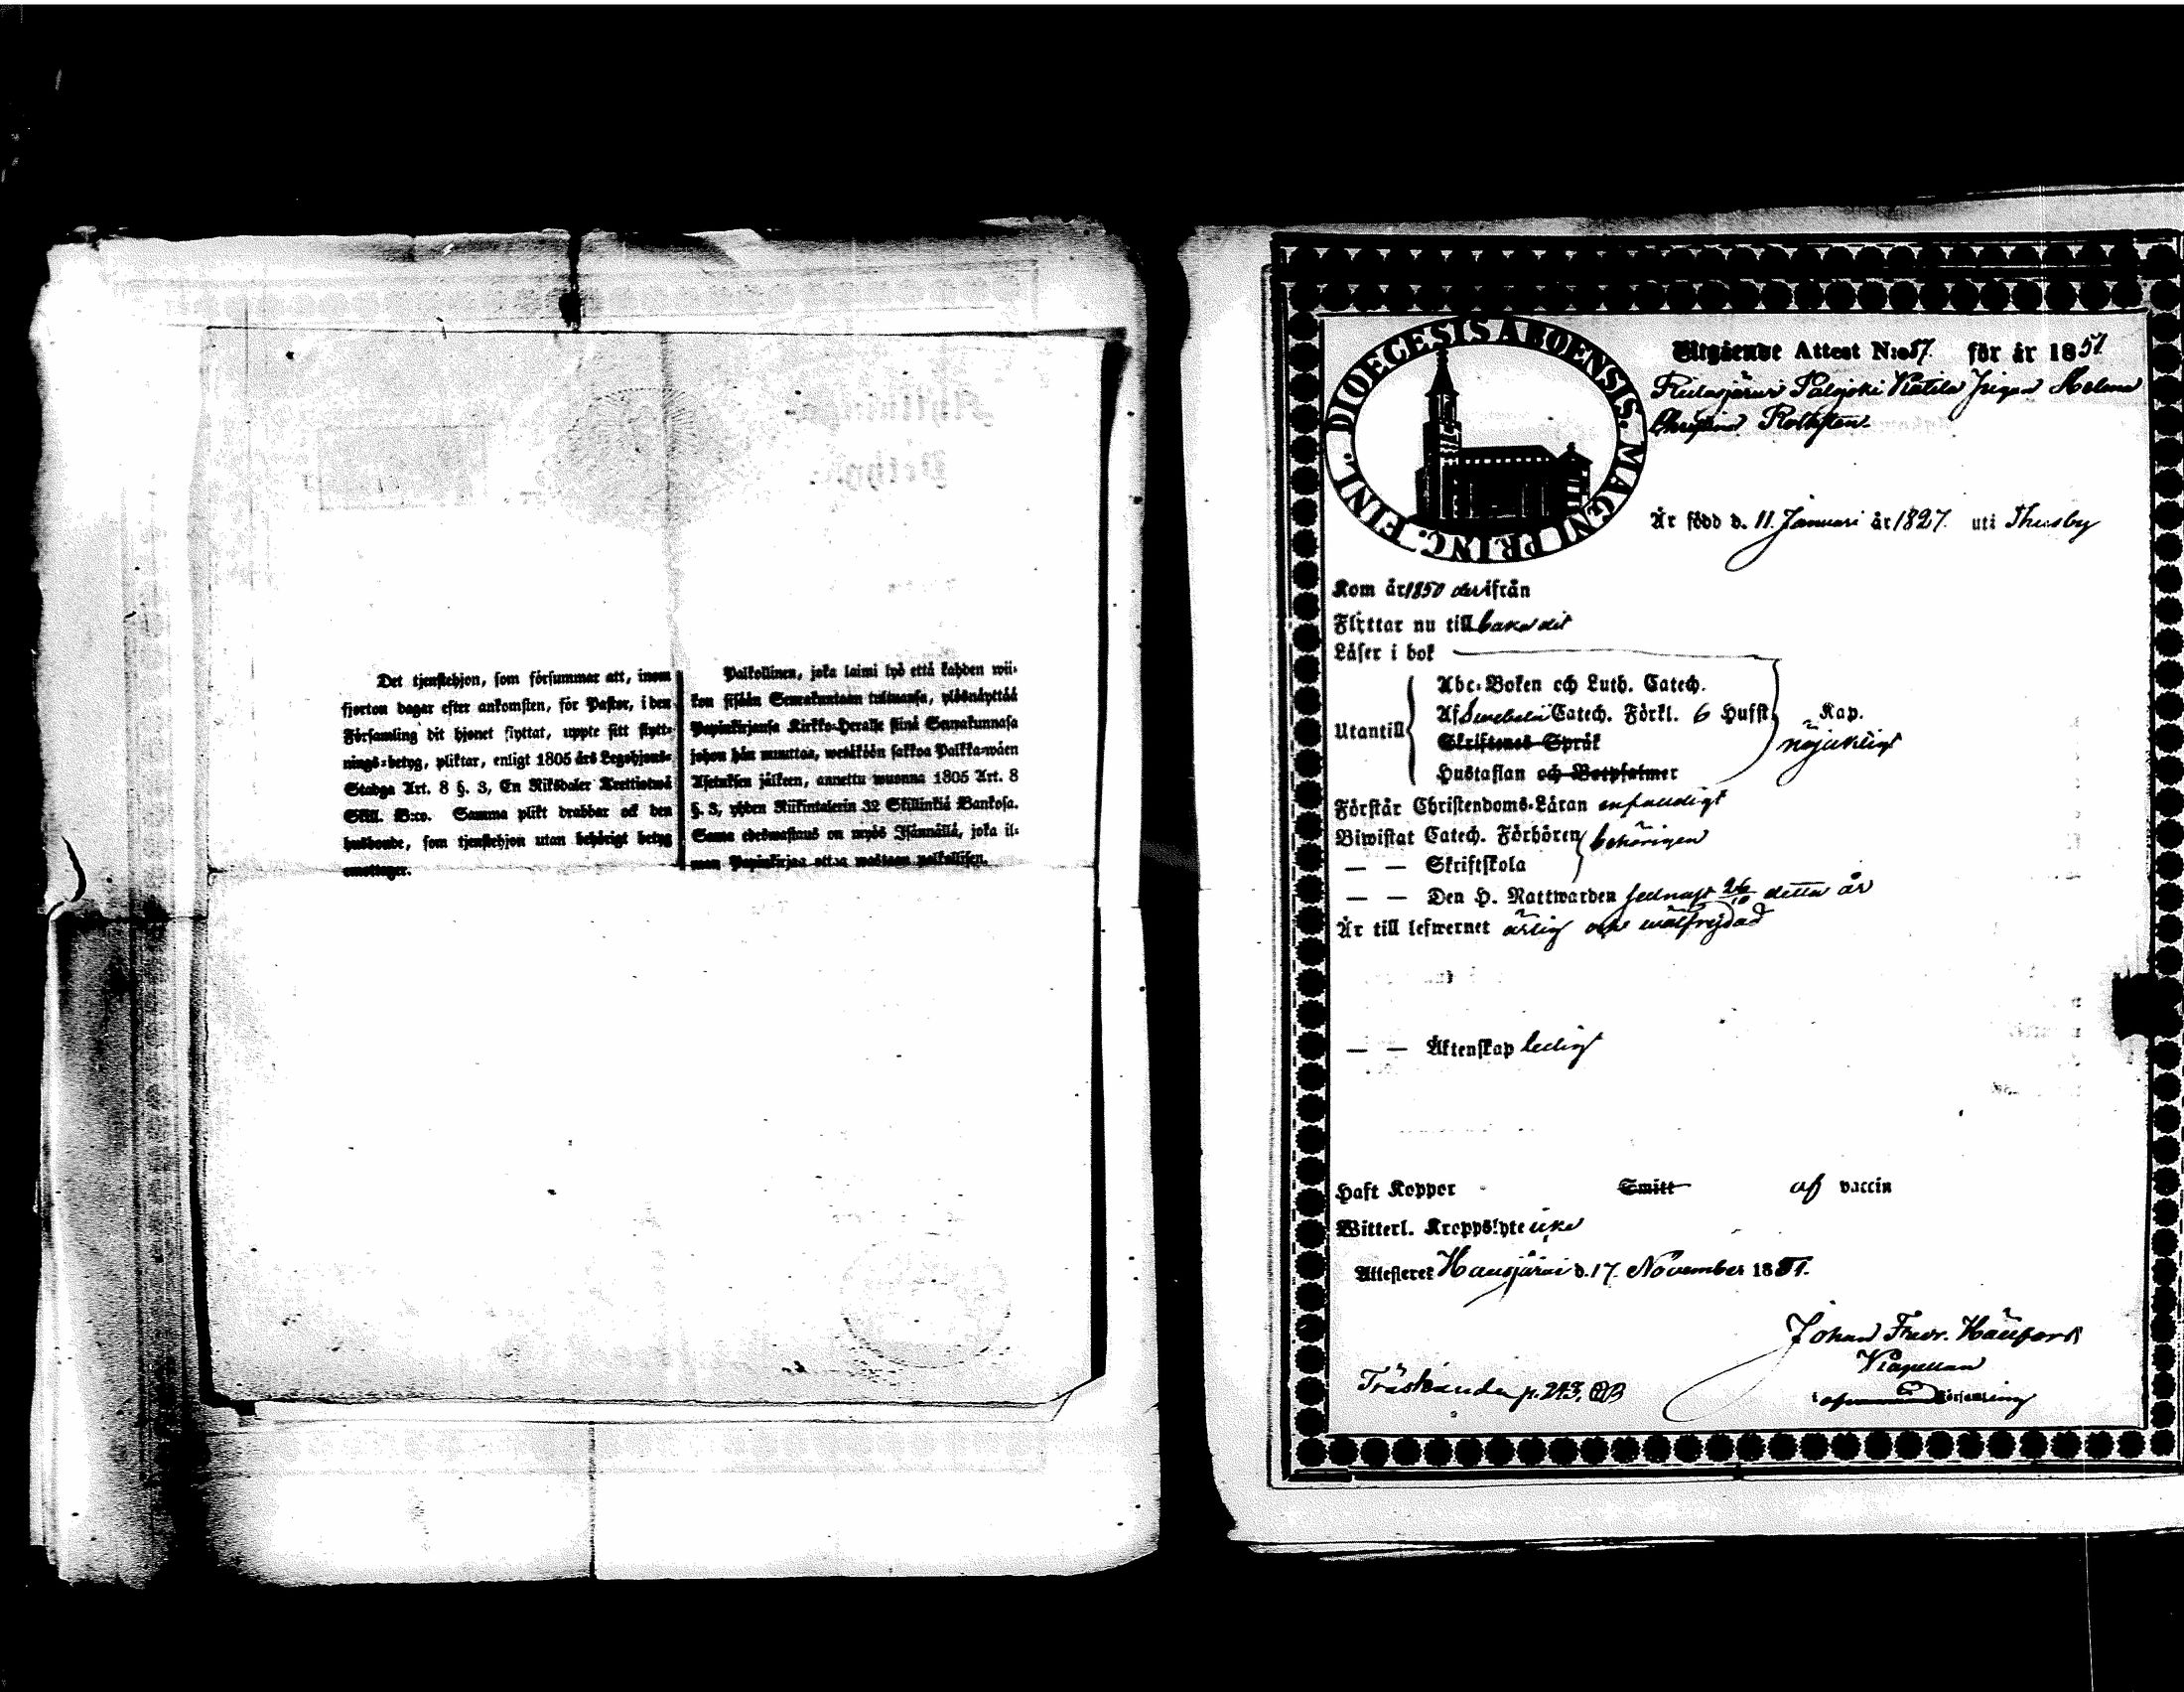 Det tjenstehjon, som försummar att, inom
fjorton dagar efter ankomsten, för Pastor, i den
Församling dit hjonet flyttat, uppte sitt flytt-
nings-betyg, pliktar, enligt 1805 års Legohjons-
Stadga Art. 8 §. 3, En Riksdaler Trettiotwå
Skill. B:co. Samma plikt drabbar ock den
husbonde, som tjenstehjon utan behörigt betyg
emottager.
Palkollinen, joka laimi lyö että kahden wii-
kon sisään Seurakuntaan tulmansa, ylösnäyttää
Papinkirjansa Kirkko-Heralle siinä Seurakunnasa
johon hän muuttaa, wetäköön sakkoa Palkka-wäen
Asetuksen jälkeen, annettu wuonna 1805 Art. 8
§. 3, yhden Riikintalerin 32 Skillinkiä Bankosa.
Sama edeswastaus on myös Isännällä, joka il-
man Papinkirjaa ottaa wastaan palkollisen.
DIOECESIS ABOENSIS. MAGNI PRINC. FINL.
Utgående Attest N:o 57 för år 1851
Helena
Christina
Är född d. 11. Januari år 1827. uti Thusby
Kom år 1850 derifrån
Flyttar nu tillbaka dit
Läser i bok
Abc-Boken och Luth. Catech.
Af Svebelii Catech. Förkl. 6 Hufst. Kap.
Utantill Skriftenes Språk nöjaktligt
Hustaflan och Botpsalmer
Förstår Christendoms-Läran enfaldigt
Biwistat Catech. Förhören behörigen
— — Skriftskola
— — Den H. Nattwarden sednast 26/10 detta år
Är till lefwernet ärlig och wälfrejdad
— — Äktenskap ledig
Haft Koppor Smitt af vaccin
Witterl. Kroppslyte icke
Attesterer Hausjärvi d. 17. November 1851.
Johan Fredr.
Kapellan
i Församling
Träskända p. 243,